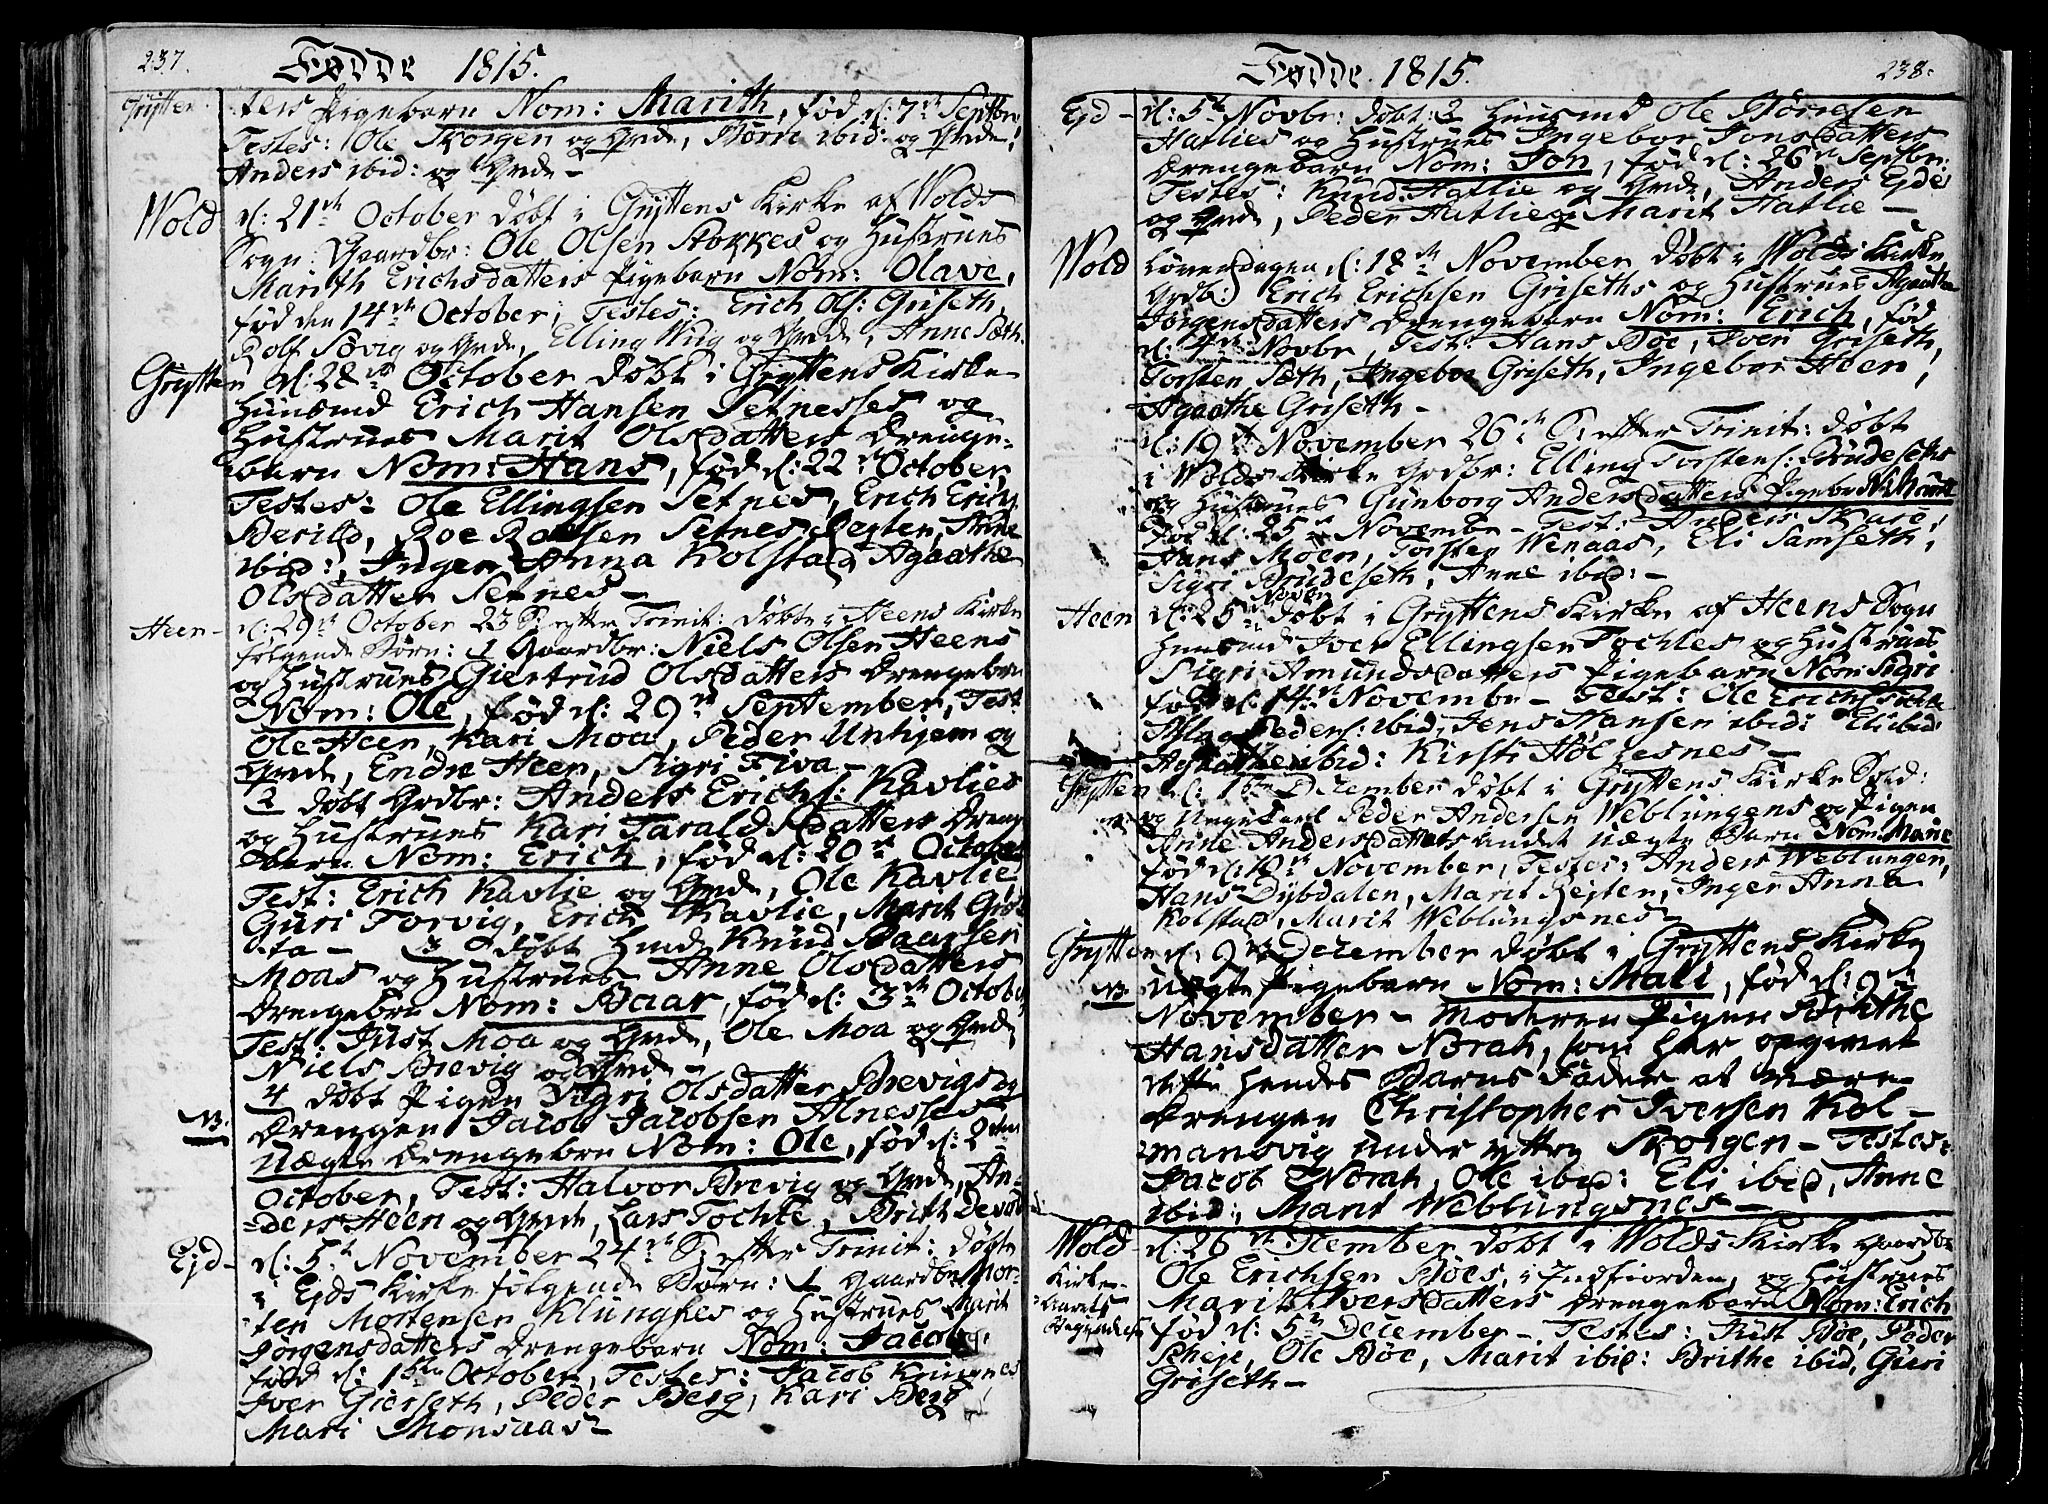 237.
Fødde 1815.
Grytten.
ters Pigebarn Nom: Marith, fød d: 7de Septbr
Testes: Ole Skorgen og Qvde, Børre ibid: og Qvde,
Anders ibid: og Qvde –
Wold
d: 21de October døbt i Gryttens Kirke af Wolds
Sogn Gaardbr: Ole Olsen Stokkes og Hustrues
Marith Erichsdatters Pigebarn Nom: Olave,
fød den 14de October, Testes: Erich Ols: Griseth,
Rolf Søvig og Qvde, Elling Wiig og Qvde, Anne Sæth.
Grytten
d: 28de October døbt i Gryttens Kirke
Huusmd Erich Hansen Setnesses og
Hustrues Marit Olsdatters Drenge-
barn Nom: Hans, fød d: 22de October,
Testes: Ole Ellingsen Setnes, Erich Erichs:
Berild, Roe Roesen Setnes Pejten,
ibid:, Inger Anna Kolstad, Agaathe
Olsdatter Setnes –
Heen –
d: 29de October 23 S: efter Trinit: døbte i Heens Kirke
følgende Børn: 1 Gaardbr: Niels Olsen Heens
og Hustrues Giertrud Olsdatters Drengebrn
Nom: Ole, fød d: 29de September, Test:
Ole Heen, Kari Moa, Peder Unhjem og
Qvde, Endre Heen, Sigri Fiva –
2 døbt Grdbr: Anders Erichs: Kavlies
og Hustrues Kari Taraldsdatters Drenge-
barn Nom: Erich, fød d: 20de October
Test: Erich Kavlie og Qvde, Ole Kavlie,
Guri Torvig, Erich Kavlie, Marit Grø-
ta – 3 døbt Huusmd Knud Baarsen
Moas og Hustrues Anne Olsdatters
Drengebrn Nom: Baar, fød d: 3de October
Test: Just Moa og Qvde, Ole Moa og Qvde,
Niels Brevig og Qvde –
NB.
4 døbt Pigen Sigri Olsdatter Brevigs og
Drengen Jacob Jacobsen Alnesses
Uægte Drengebrn Nom: Ole, fød d: 2den
October, Test: Halvor Brevig og Qvde, An-
ders Heen og Qvde, Lars Tochle, Britt Devold
Ejd –
d: 5te November 24de S: efter Trinit: døbte
i Ejds Kirke følgende Børn: 1 Gaardbr Mor-
ten Mortensen Klungnes og Hustrues Marit
Jørgensdatters Drengebarn Nom: Jacob,
fød d: 15de October, Testes: Jacob Klungnes
Iver Gierseth, Peder Berg, Kari Berg
Mari Monsaas –
238.
Fødde 1815.
Ejd –
d: 5te Novbr: døbt 2 Huusmd Ole Børresen
Hatlies og Hustrues Ingebor Jonsdatters
Drengebarn Nom: Jon, fød d: 26de Septbr:
Testes: Knud Hatlie og Qvde, Anders Ejde
og Qvde, Peder Hatlie, Marit Hatlie –
Wold
Løverdagen d: 18de November døbt i Wolds Kirke
Grdb: Erich Erichsen Griseths og Hustrues Agaathe
Jørgensdatters Drengebarn Nom: Erich, fød
d: 4de Novbr, Test: Hans Bøe, Iver Griseth,
Torsten Sæth, Ingebor Griseth, Ingebor Heen,
Agaathe Griseth –
d: 19de November 26de S: efter Trinit: døbt
i Wolds Kirke Grdbr: Elling Torstens: Brudeseths
og Hustrues Gunborg Andersdatters Pigebrn N: Marit
fød d: 25de Novembr – Test: Anders Skare,
Hans Moen, Torsten Wenaas, Eli Samseth,
Sigri Brudeseth, Anne ibid: –
Heen
d: 25de Novbr døbt i Gryttens Kirke af Heens Sogn
Huusmd Iver Ellingsen Tochles og Hustrues
Sigri Amundsdatters Pigebarn Nom: Sigri
fød d: 14de Novembr – Test: Ole Erichs: Tochle
Aslag Peders: ibid, Jens Hansen ibid: Eli ibid:
Agaathe ibid: Kirsti Holgesnes –
Grytten
d: 1ste December døbt i Gryttens Kirke Sold:
og Ungekarl Peder Andersen Weblungens og Pigen
Anne Andersdatters andet uægte Barn Nom: Marie
fød d: 10de November, Testes: Anders Weblungen,
Hans Dybdalen, Marit Pejten, Inger Anna
Kolstad, Marit Weblungsnes
Grytten
NB.
d: 9de December døbt i Gryttens Kirke
Uægte Pigebarn Nom: Mali, fød d: 9de
November – Moderen Pigen Brithe
Hansdatter Norah, som har opgivet
dette hendes Barns Fader at være
Drengen Christopher Iversen Kol-
mansvig under ytre Skorgen – Testes:
Jacob Norah, Ole ibid: Eli ibid, Anne
ibid:, Marit Weblungsnes –
Wold
Kirke-
Aarets
Begyndelse
d: 26de December døbt i Wolds Kirke Gaardbr
Ole Erichsen Bøes, i Indfiorden, og Hustrues
Marit Iversdatters Drengebarn Nom: Erich
fød d: 5te December – Testes: Just Bøe, Peder
Scheje, Ole Bøe, Marit ibid: Brithe ibid, Guri
Griseth –